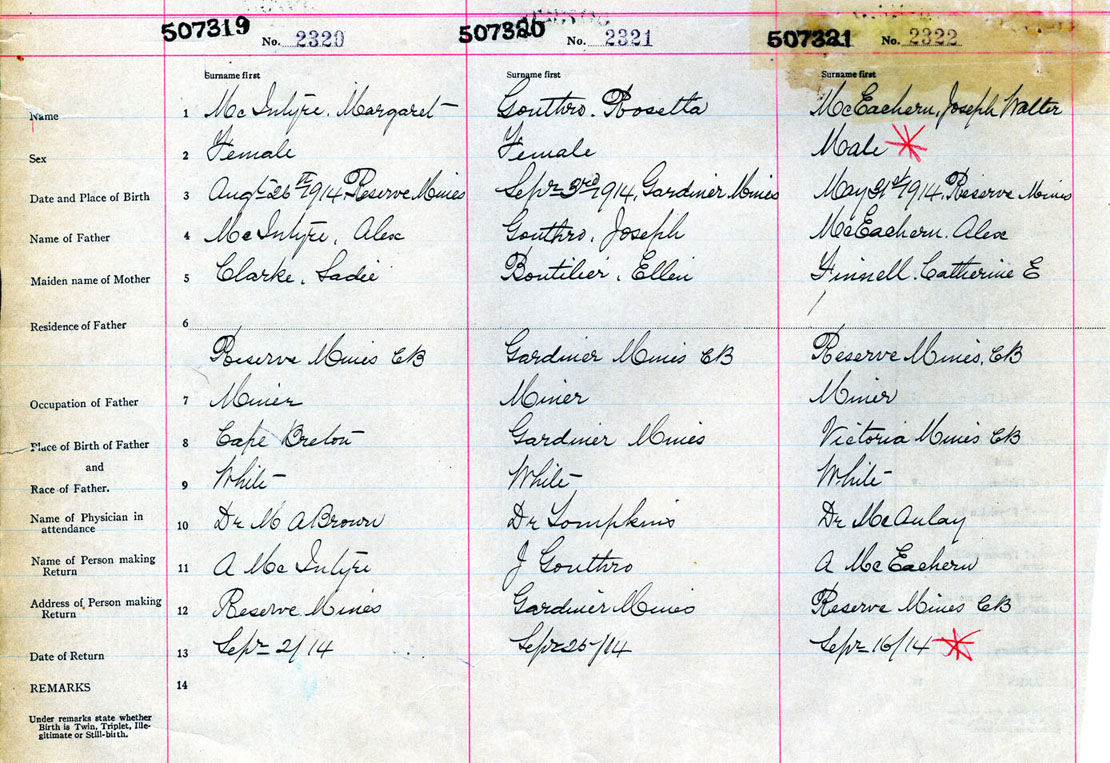 507319 No. 2320 507320 No. 2321 507321 No. 2322
Surname first Surname first Surname first
Name 1 McIntyre, Margaret Gouthro. Rosetta McEachern, Joseph Walter
Sex 2 Female Female Male
Date and Place of Birth 3 Augt 26th 1914, Reserve Mines Sepr 3rd 1914, Gardiner Mines May 31st 1914, Reserve Mines
Name of Father 4 McIntyre, Alex Gouthro, Joseph McEachern. Alex
Maiden name of Mother 5 Clarke, Sadie Boutilier, Ellen Finnell. Catherine E
Residence of Father 6
Reserve Mines CB Gardiner Mines CB Reserve Mines, CB
Occupation of Father 7 Miner Miner Miner
Place of Birth of Father 8 Cape Breton Gardiner Mines Victoria Mines CB
and
Race of Father. 9 White White White
Name of Physician in
attendance 10 Dr M A Brown Dr Tompkins Dr McAulay
Name of Person making
Return 11 A McIntyre J Gouthro A McEachern
Address of Person making
Return 12 Reserve Mines Gardiner Mines Reserve Mines CB
Date of Return 13 Sepr 2/14 Sepr 25/14 Sepr 16/14
REMARKS 14
Under remarks state whether
Birth is Twin, Triplet, Ille-
gitimate or Still-birth.